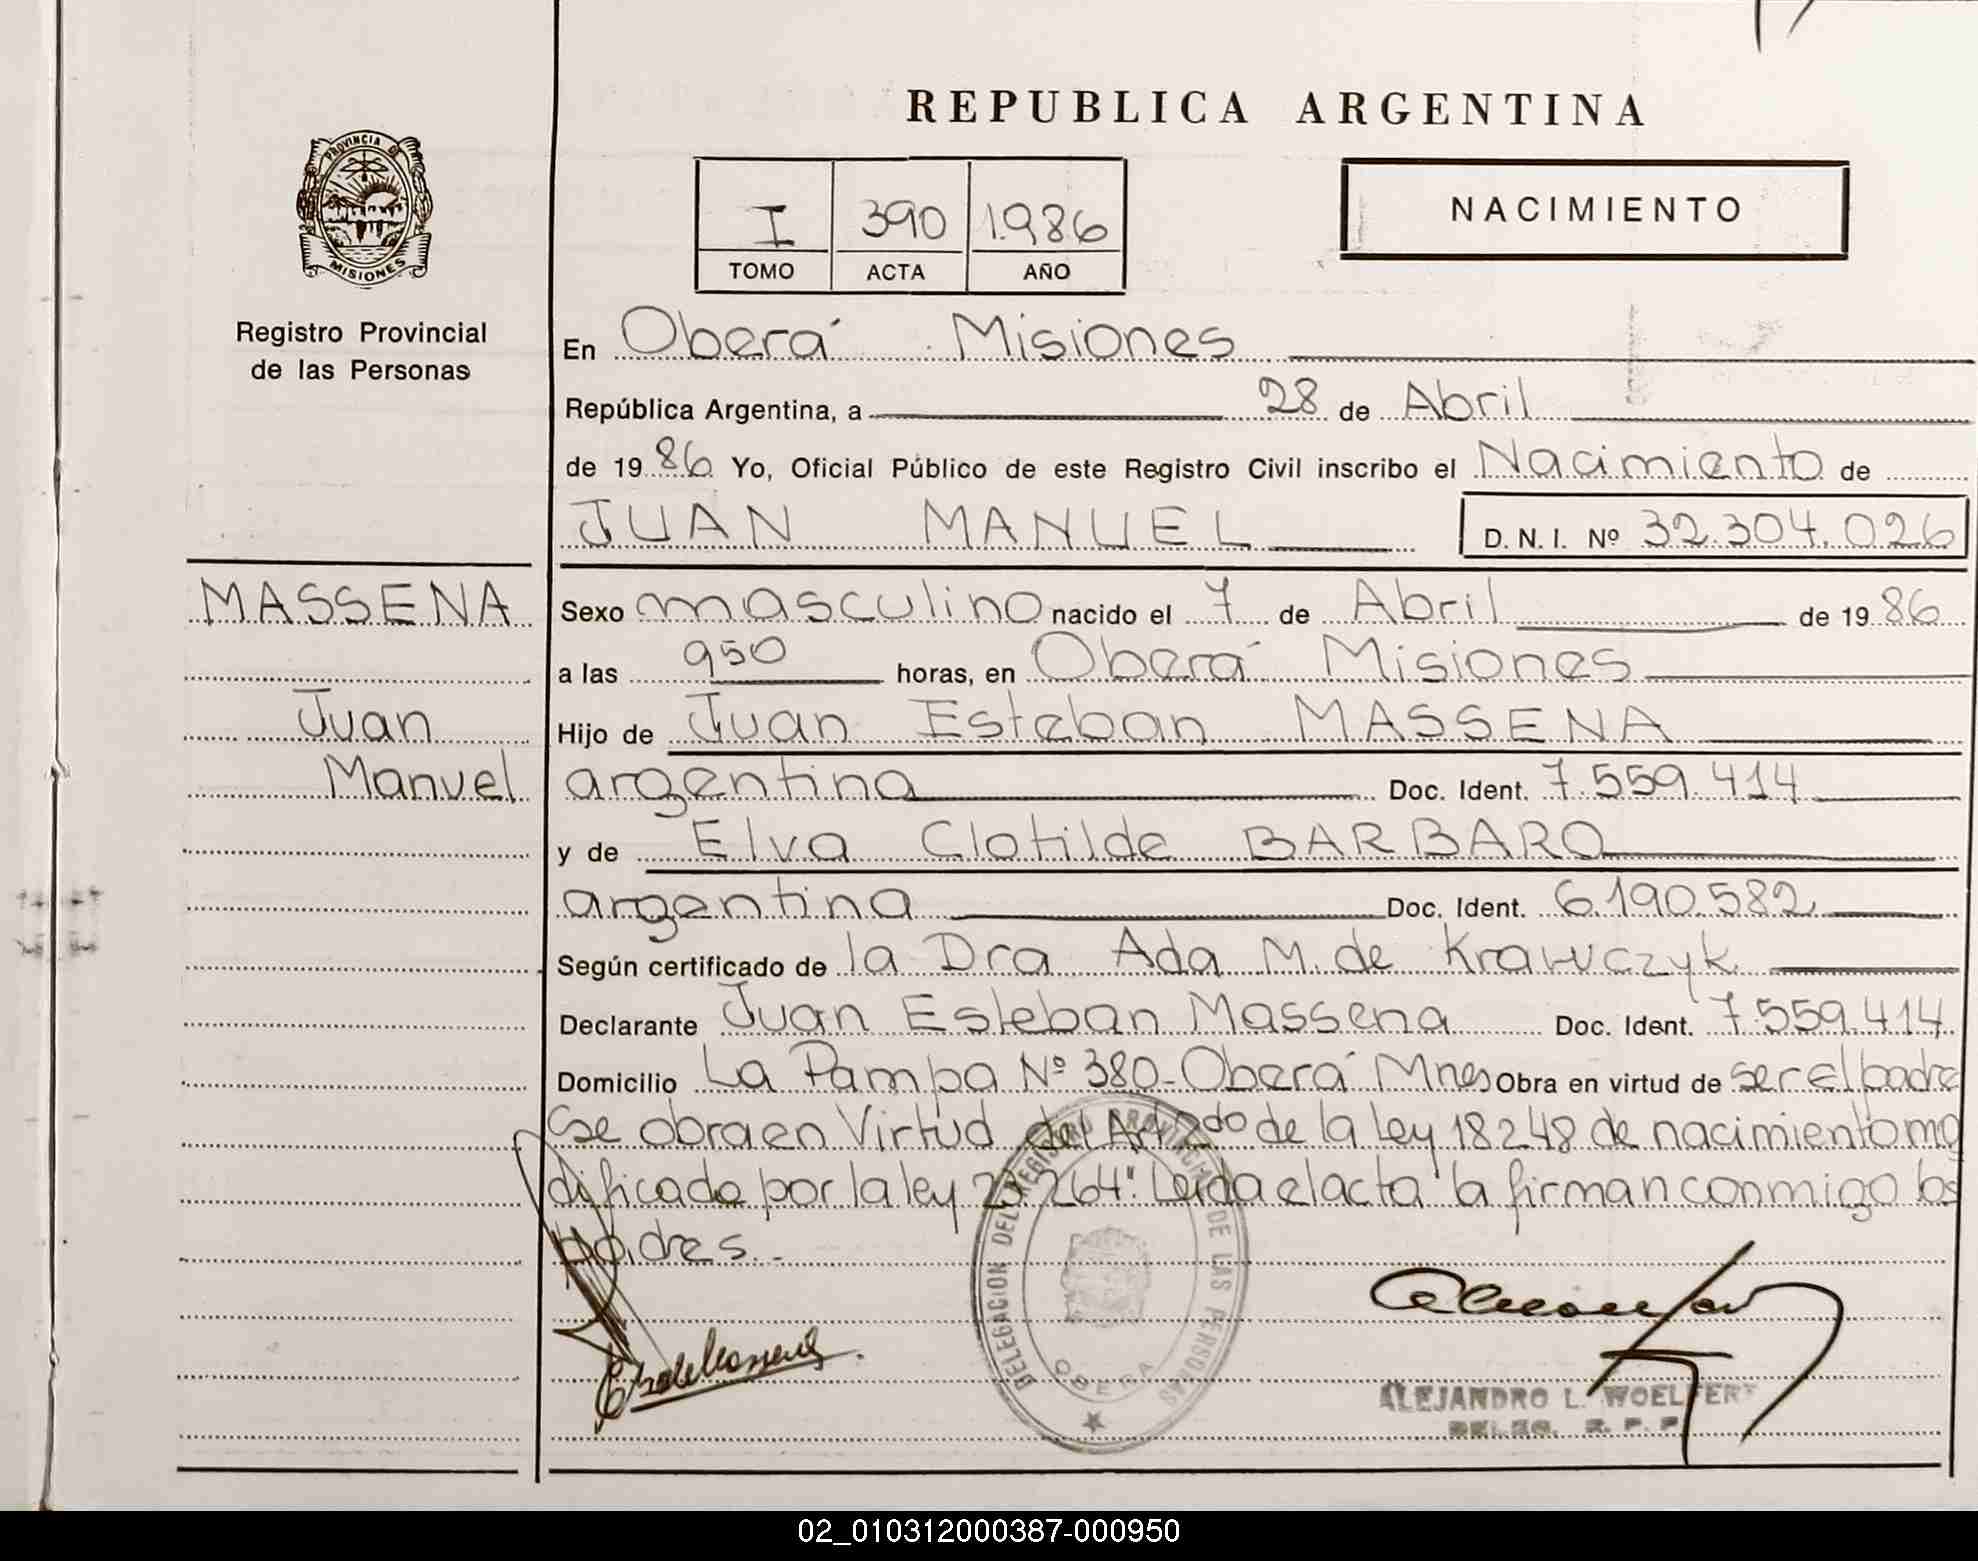 REPUBLICA ARGENTINA
PROVINCIA DE
MISIONES
Registro Provincial
de las Personas
I 390 1986
TOMO ACTA AÑO
NACIMIENTO
En Oberá Misiones
República Argentina, a 28 de Abril
de 1986 Yo, Oficial Público de este Registro Civil inscribo el Nacimiento de
JUAN MANUEL D. N. I. Nº 32.304.026
MASSENA
Juan
Manuel
Sexo masculino nacido el 7 de Abril de 1986
a las 950 horas, en Oberá Misiones
Hijo de Juan Esteban MASSENA
argentina Doc. Ident. 7.559.414
y de Elva Clotilde BARBARO
argentina Doc. Ident. 6.190.582
Según certificado de la Dra Ada M. de Krawczyk
Declarante Juan Esteban Massena Doc. Ident. 7.559.414
Domicilio La Pampa Nº 380-Oberá Mnes Obra en virtud de ser el padre
"Se obra en Virtud del Art 2do de la ley 18248 de nacimiento mo
dificado por la ley 20.264". Leida el acta la firman conmigo los
padres.-
DELEGACION DEL REGISTRO PROVINCIAL DE LAS PERSONAS
OBERA
ALEJANDRO L. WOELFERT
DELEG. R. P. P.
02_010312000387-000950